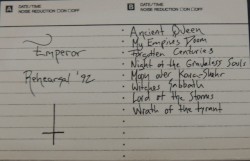 A DATE/TIME
NOISE REDUCTION □ ON □ OFF
B DATE/TIME
NOISE REDUCTION □ ON □ OFF
Emperor
Rehearsal '92
• Ancient Queen
• My Empire's Doom
• Forgotten Centuries
• Night of the Graveless Souls
• Moon over Kara-Shehr
• Witches Sabbath
• Lord of the Storms
• Wrath of the tyrant